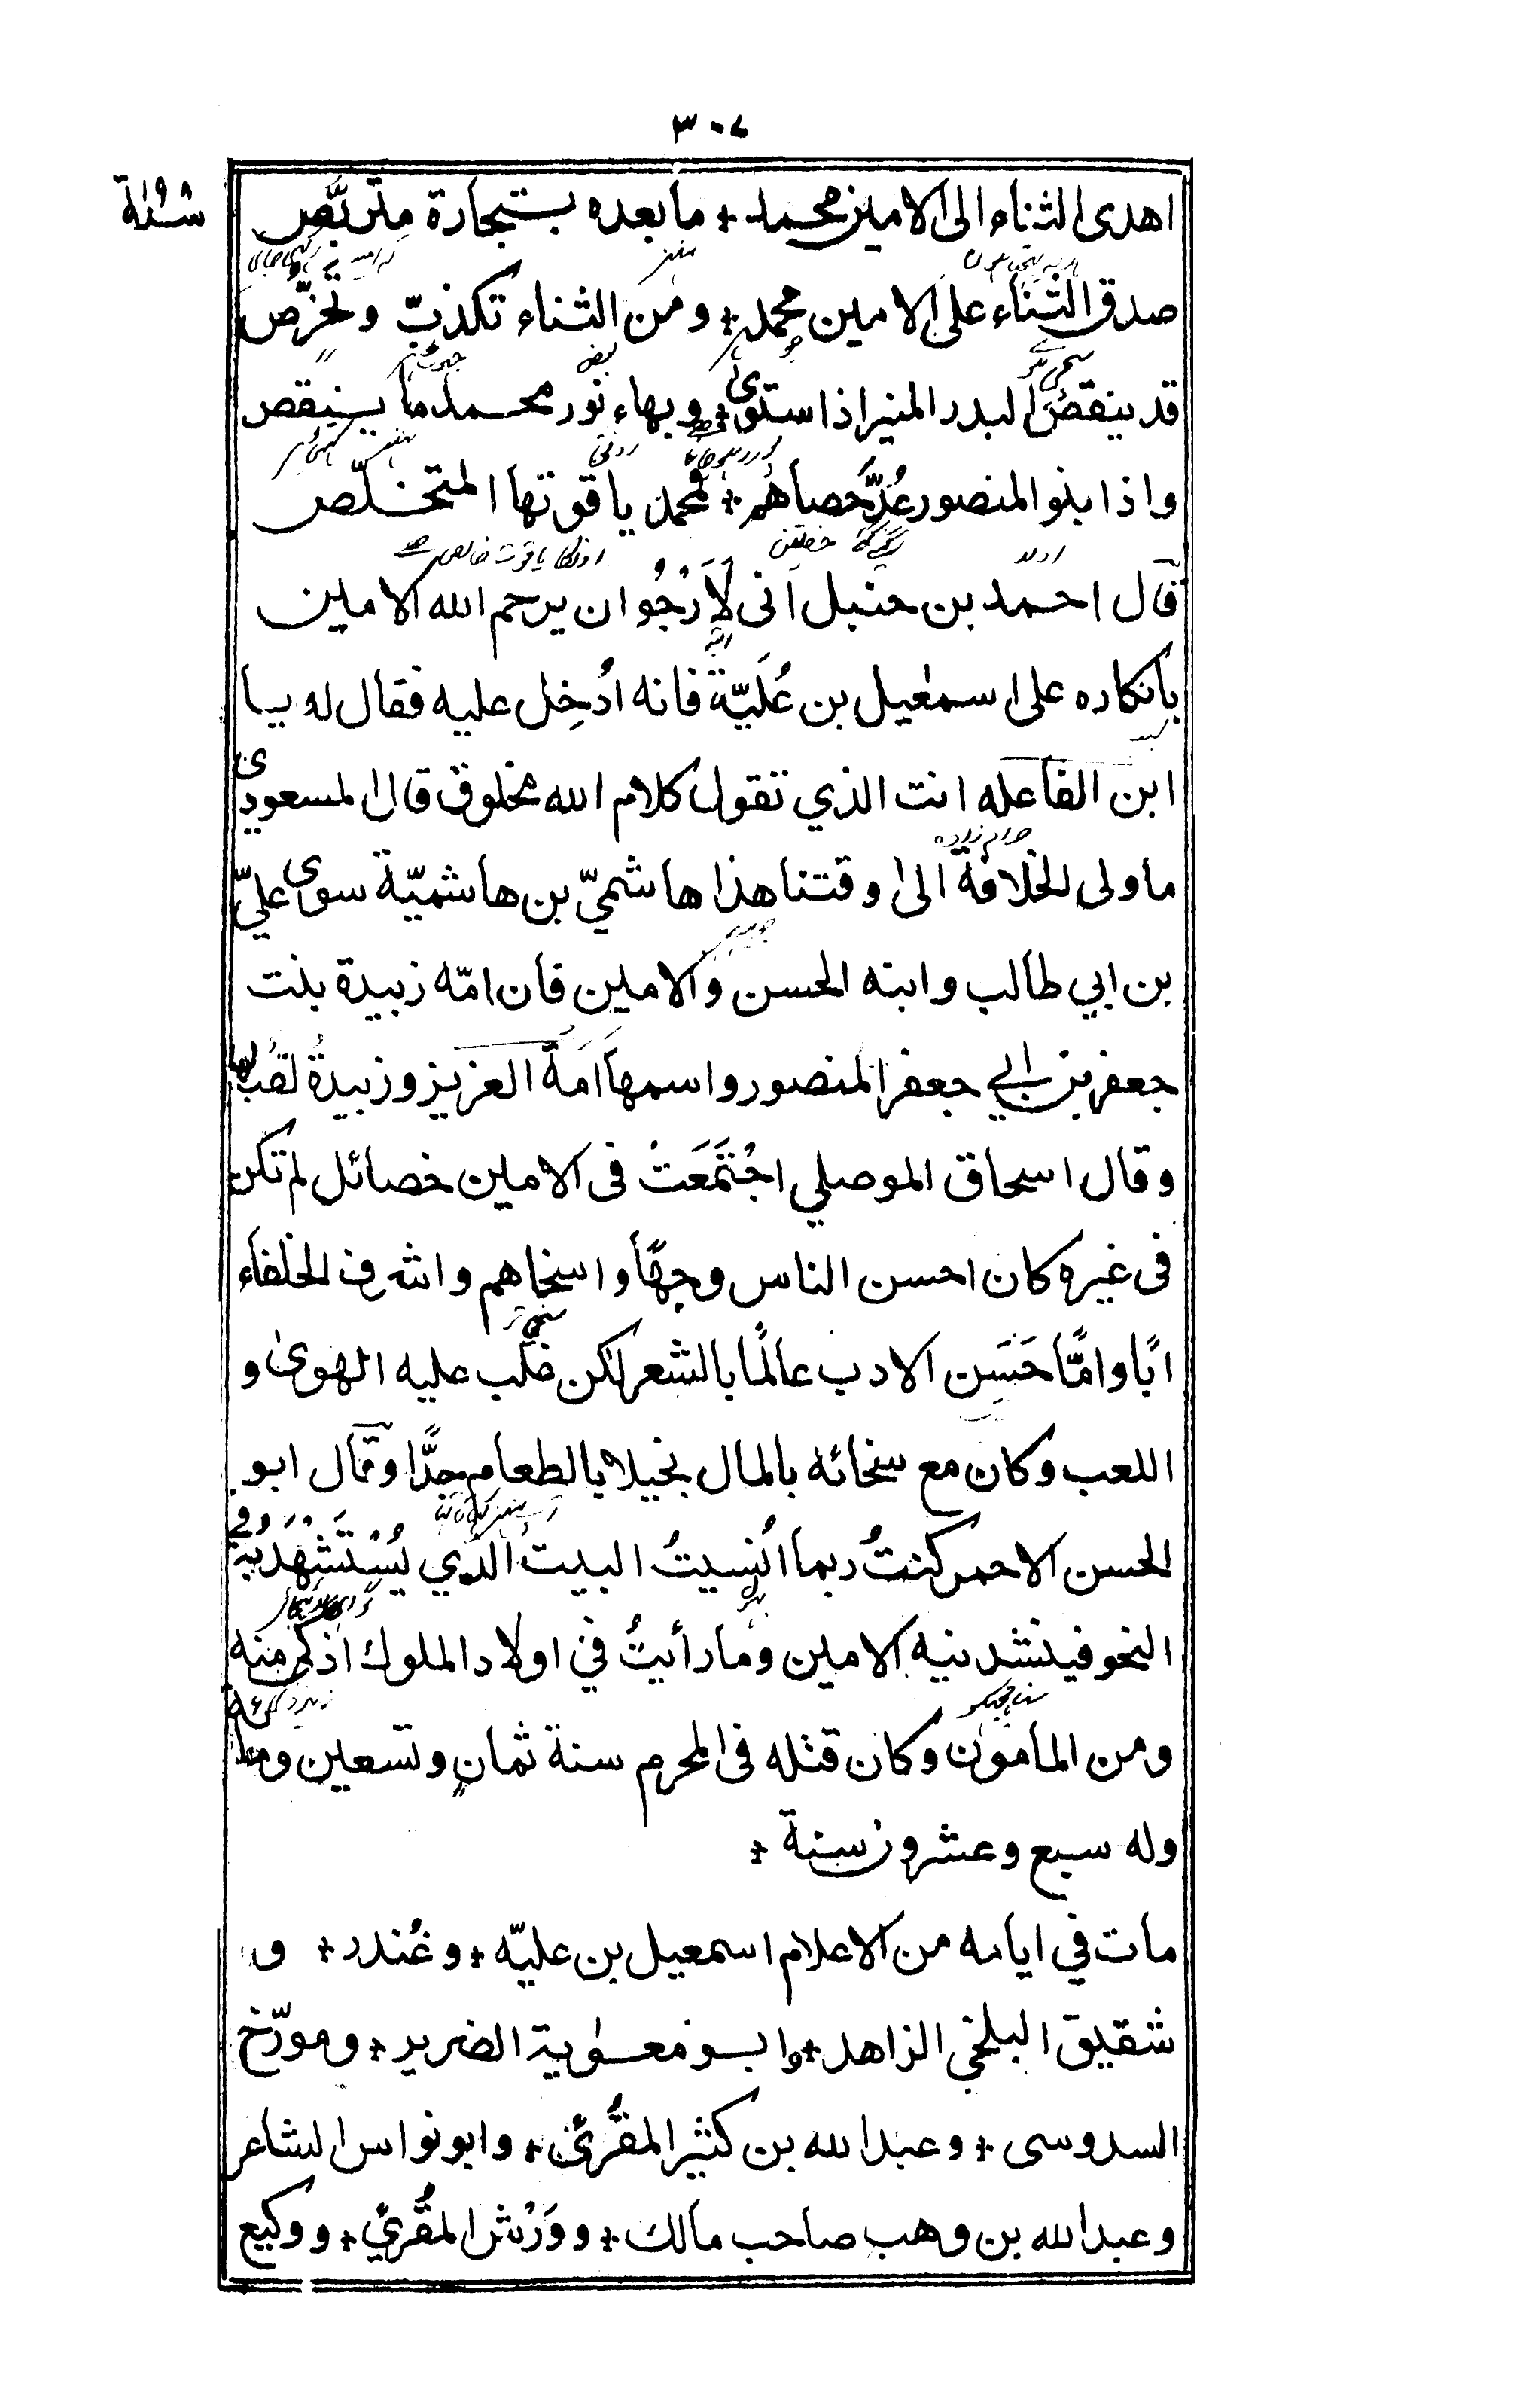 ٣٠٧
١٩٨ سنة
اهدى الثناء الى الامين محمد ۞ ما بعده بتجارة متربّص
صدق الثناء على الامين محمد ۞ ومن الثناء تكذبّ وتخرّص
قد ينقص البدر المنير اذا ستوى ۞ وبهاء نور محمد ما ينقص
واذا بنو المنصور عُدّ حصاهم ۞ فمحمد ياقوتها المتخلّص
قال احمد بن حنبل انى لَاَرْجُو ان يرحم الله الامين
بانكاره على اسمٰعيل بن عُلَيّة فانه اُدخِل عليه فقال له يا
ابن الفاعله انت الذي تقول كلام الله مخلوق قال المسعودي
ما ولى الخلافة الى وقتنا هذا هاشميّ بن هاشميّة سوى عليّ
بن ابي طالب وابنه الحسن والامين فان امّه زبيدة بنت
جعفر بن ابي جعفر المنصور واسمها اَمَةُ العزيز وزبيدةُ لقبُ لها
وقال اسحاق الموصلي اجْتَمَعَتْ فى الامين خصائل لم تكن
فى غيره كان احسن الناس وجهًا واسخاهم واشرف الخلفاء
ابًا وامًّا حَسَن الادب عالمًا بالشعر لكن غلب عليه الهوىٰ و
اللعب وكان مع سخائه بالمال بخيلا بالطعام جدًّا وقال ابو
الحسن الاحمر كنتُ ربما اُنسيتُ البيت الذي يُسْتَشْهَدُ به في
النحو فينشدنيه الامين وما رأيتُ في اولاد الملوك اذكى منه
ومن المامون وكان قتله فى المحرم سنة ثمانٍ وتسعين ومائة
وله سبع وعشرون سنة ۞
مات في ايامه من الاعلام اسمعيل بن عليّه ۞ وغُندر ۞ و
شقيق البلخي الزاهد ۞ وابو معٰوية الضرير ۞ ومورّخ
السدوسى ۞ وعبد الله بن كثير المقرئ ۞ وابو نواس الشاعر
وعبد الله بن وهب صاحب مالك ۞ ووَرْش المقرئ ۞ ووكيع